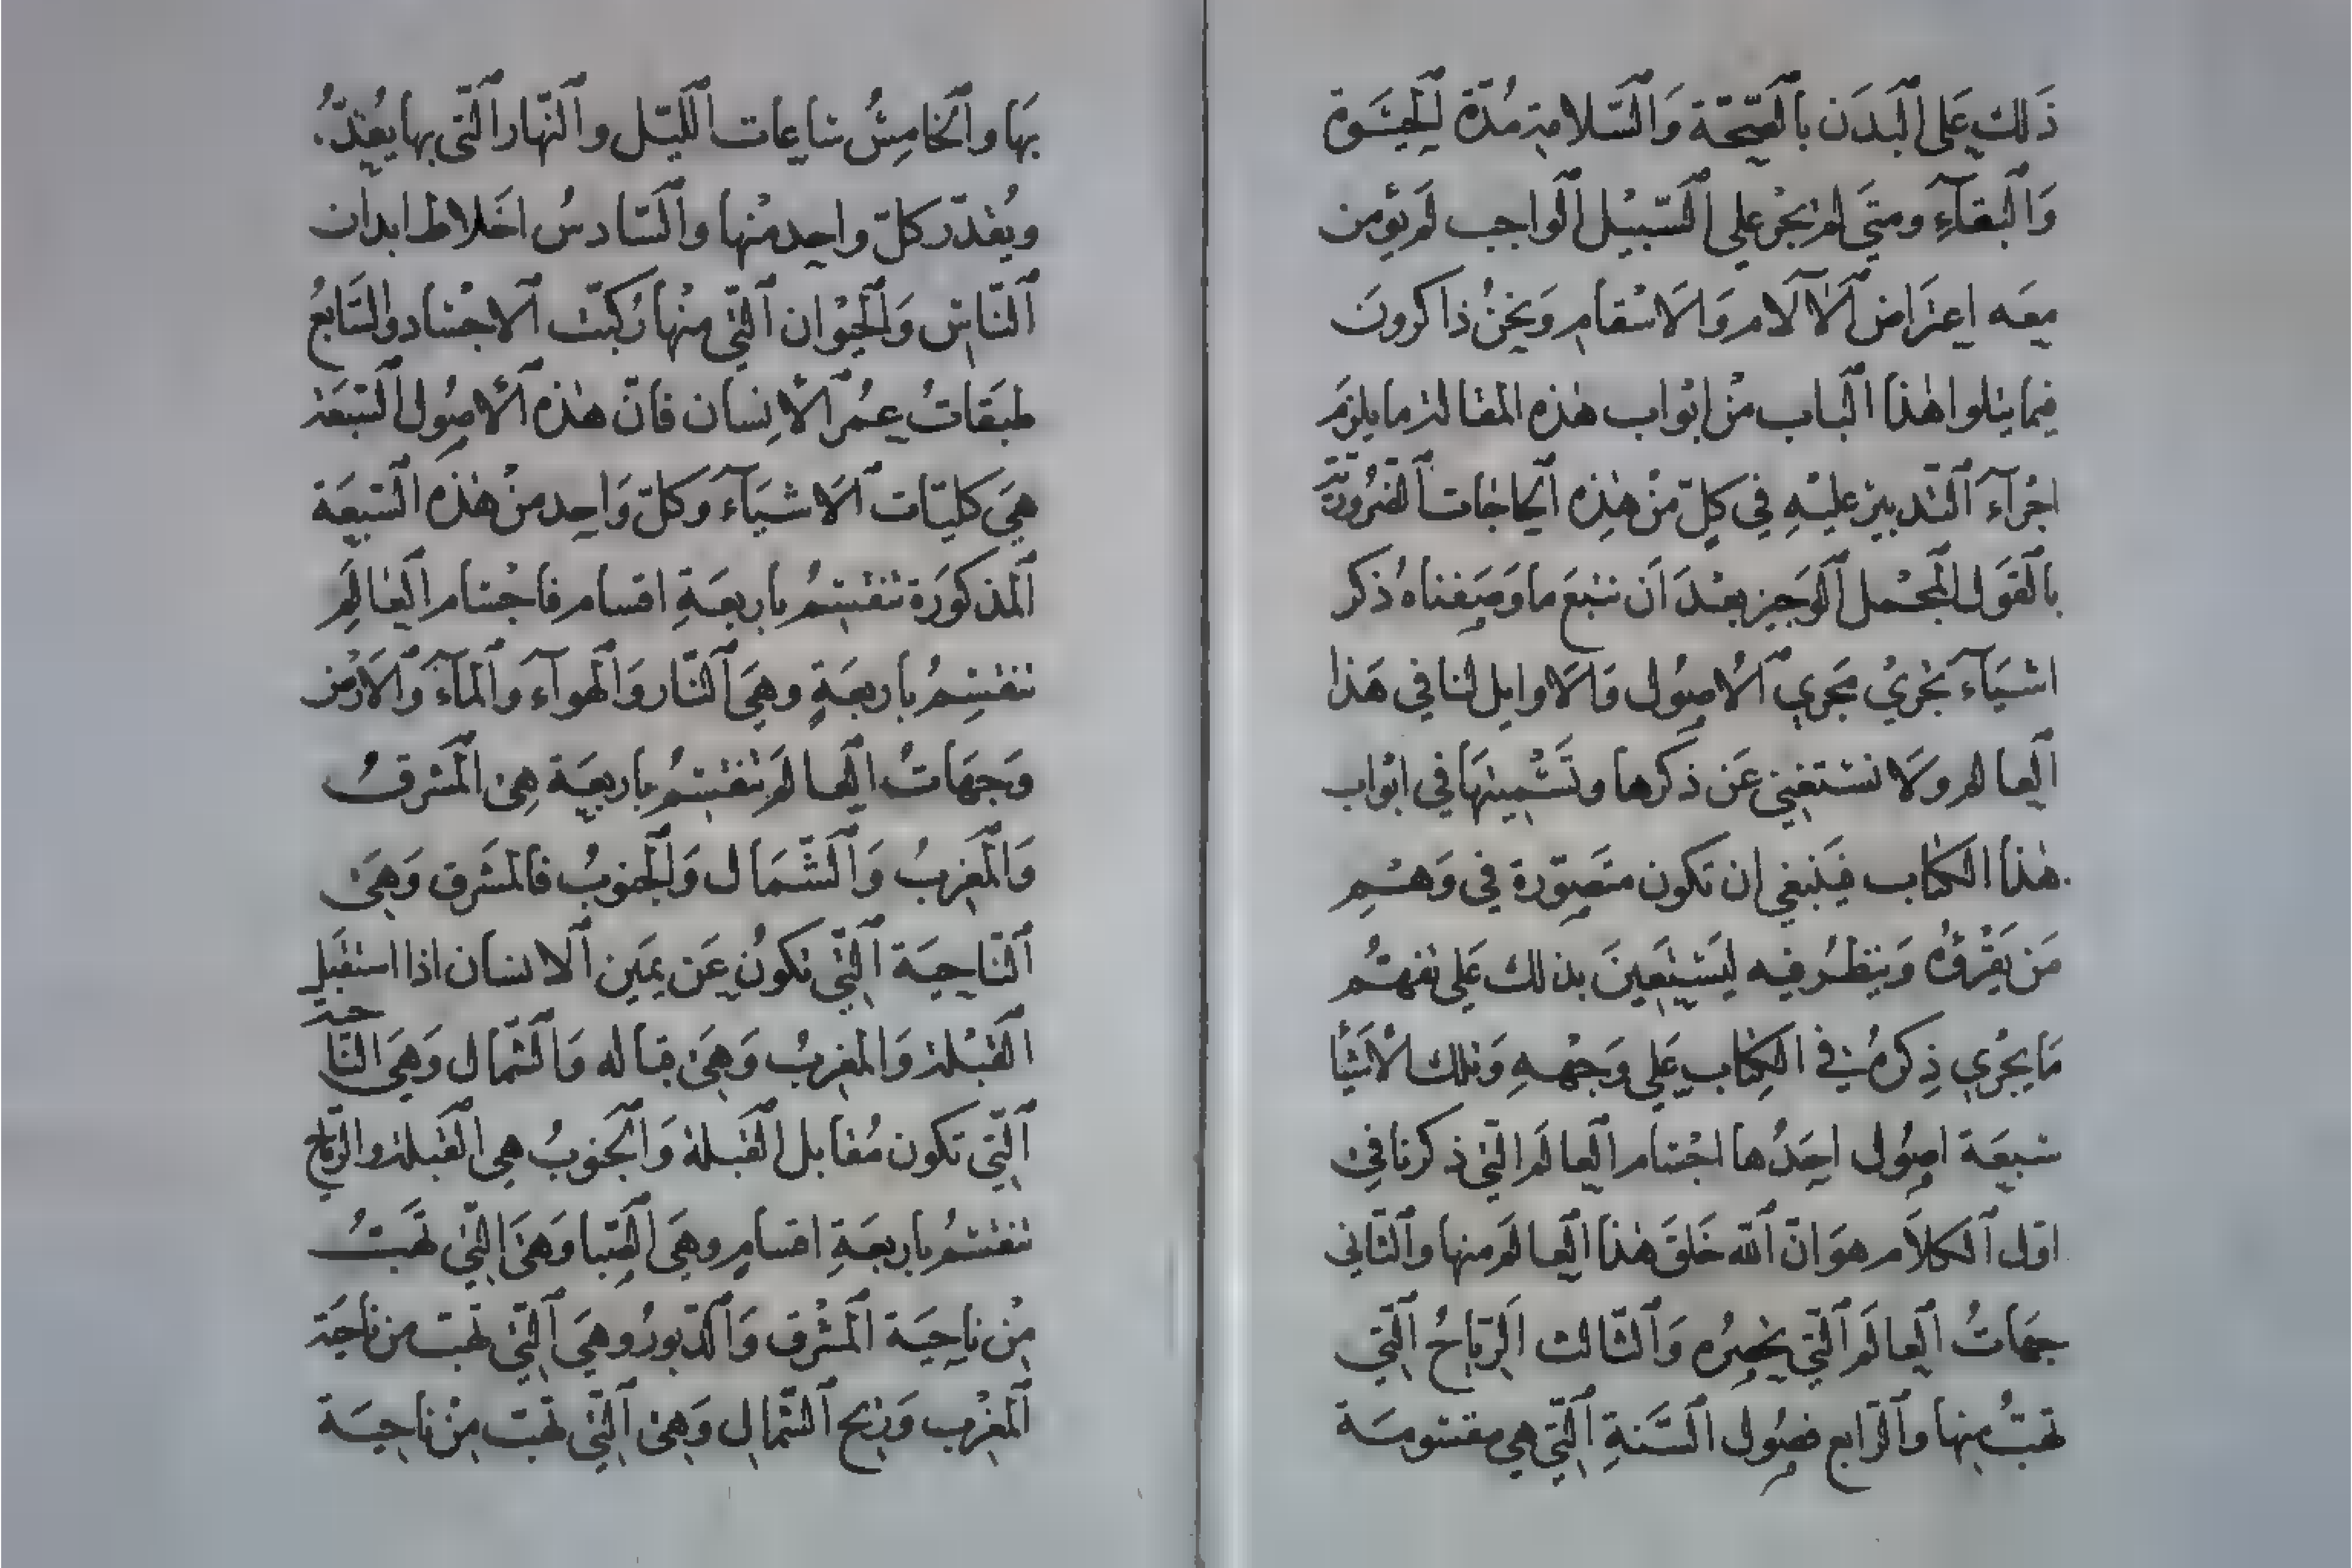 ذَلك عَلى اَلبَدَن باَلصّحّة وَاَلسّلامة مُدّة اَلحيَوة
وَاَلبقآءِ ومتَى لم يجْر على اَلسّبيْل اَلواجب لم يؤمن
معَه اعترَاض اَلآلام وَالاَسْقام وَنحنُ ذاكرونَ
فيما يتلوا هٰذا اَلباب منْ ابْواب هٰذه المقالة ما يلزمَ
اجْرآءَ اَلتّدبير عليْهِ في كلّ منْ هٰذِه اَلحاجات اَلضّرُوريّة
باَلقوَل اَلمجْمل اَلوَجيز بعْدَ اَن نتبعَ ما وَصَفناهُ ذكر
اشيَآءَ تجْريْ مجَري اَلاُصُول وَالاَوايل لنا في هَذا
اَلعالم ولاَ نسْتغني عَن ذكرها وتَسْميتهَا في ابْواب
هٰذا الكتاب فيَنبغي ان تكون متَصوّرة في وَهْمِ
مَن يَقْرؤُه وَينظرُ فيه ليَسْتعينَ بذلك عَلى تفهّم
مَا يجْري ذِكرهُ في الكِتاب عَلى وَجْههِ وَتلك الاَشيْآ
سَبعَة اصُول احَدُها اجْسَام اَلعالَم اَلتي ذكرنا في
اوّل اَلكلاَم هوَ انّ اَللّه خَلقَ هٰذا اَلعالَم منها واَلثّاني
جهَاتُ اَلعالَم اَلّتي تحصِره وَاَلثّالث اَلرّيَاحُ اَلّتي
تهَبّ منها واَلرّابع فصُول اَلسّنةِ اَلّتي هي مقسومَة
بهَا واَلخامسُ سَاعات اَللّيْل واَلنّهار اَلّتي بها يعُدّ
ويُقدّر كلّ واحد منْها واَلسّادسُ اخَلاط ابدان
اَلنّاس وَاَلحيْوان اَلّتي منْها رُكبّت اَلاجْسَاد والسَّابعُ
طبَقاتُ عمُر اَلاْنِسان فانّ هٰذه اَلاْصُول اَلسّبعَة
هيَ كليّات اَلاَشيَآءَ وَكلّ وَاحد منْ هٰذه اَلسّبعَة
اَلمذكوُرَة تنقسِمُ باربعَةِ اقسام فاجْسَام اَلعٰالَمِ
تنقسِمُ باربعَةٍ وهيَ اَلنّار وَاَلهوآء واَلمآءَ واَلاَرْض
وَجهَاتُ اَلعالَم تنْقسِمُ باربعَة هِيَ اَلمشرقُ
وَاَلمغرِبُ وَاَلشّمَال وَاَلجنوبُ فالمشَرق وَهيَ
اَلنّاحيَة اَلّتي تكونُ عَن يمَين اَلانسان اذا استقبَل
اَلقبْلة وَالمغربُ وَهيَ قبَاله وَاَلشّمال وَهيَ النّاحيَة
اَلّتي تكون مُقابل اَلقبلة وَاَلجنوبُ هي اَلقبلة والرّيَاح
تنقسمُ باربعَةِ اقسامٍ وهيَ اَلصّبا وَهيَ اَلّتي تهَبّ
منْ ناحيَة اَلمشْرق وَاَلدّبورُ وهيَ اَلّتي تهبّ من ناحيَة
اَلمغْرب وَريْح اَلشّمال وَهيَ اَلّتي تهبّ منْ ناحيَة